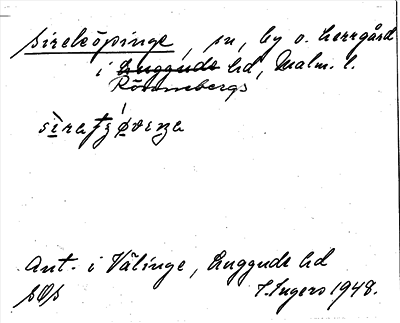 Sireköpinge, sn, by o. herrgård
i Luggude hd, Malm. l.
Rönnebergs
siratȷøviŋa
Ant. i Välinge, Luggude hd
I. Ingers 1948.